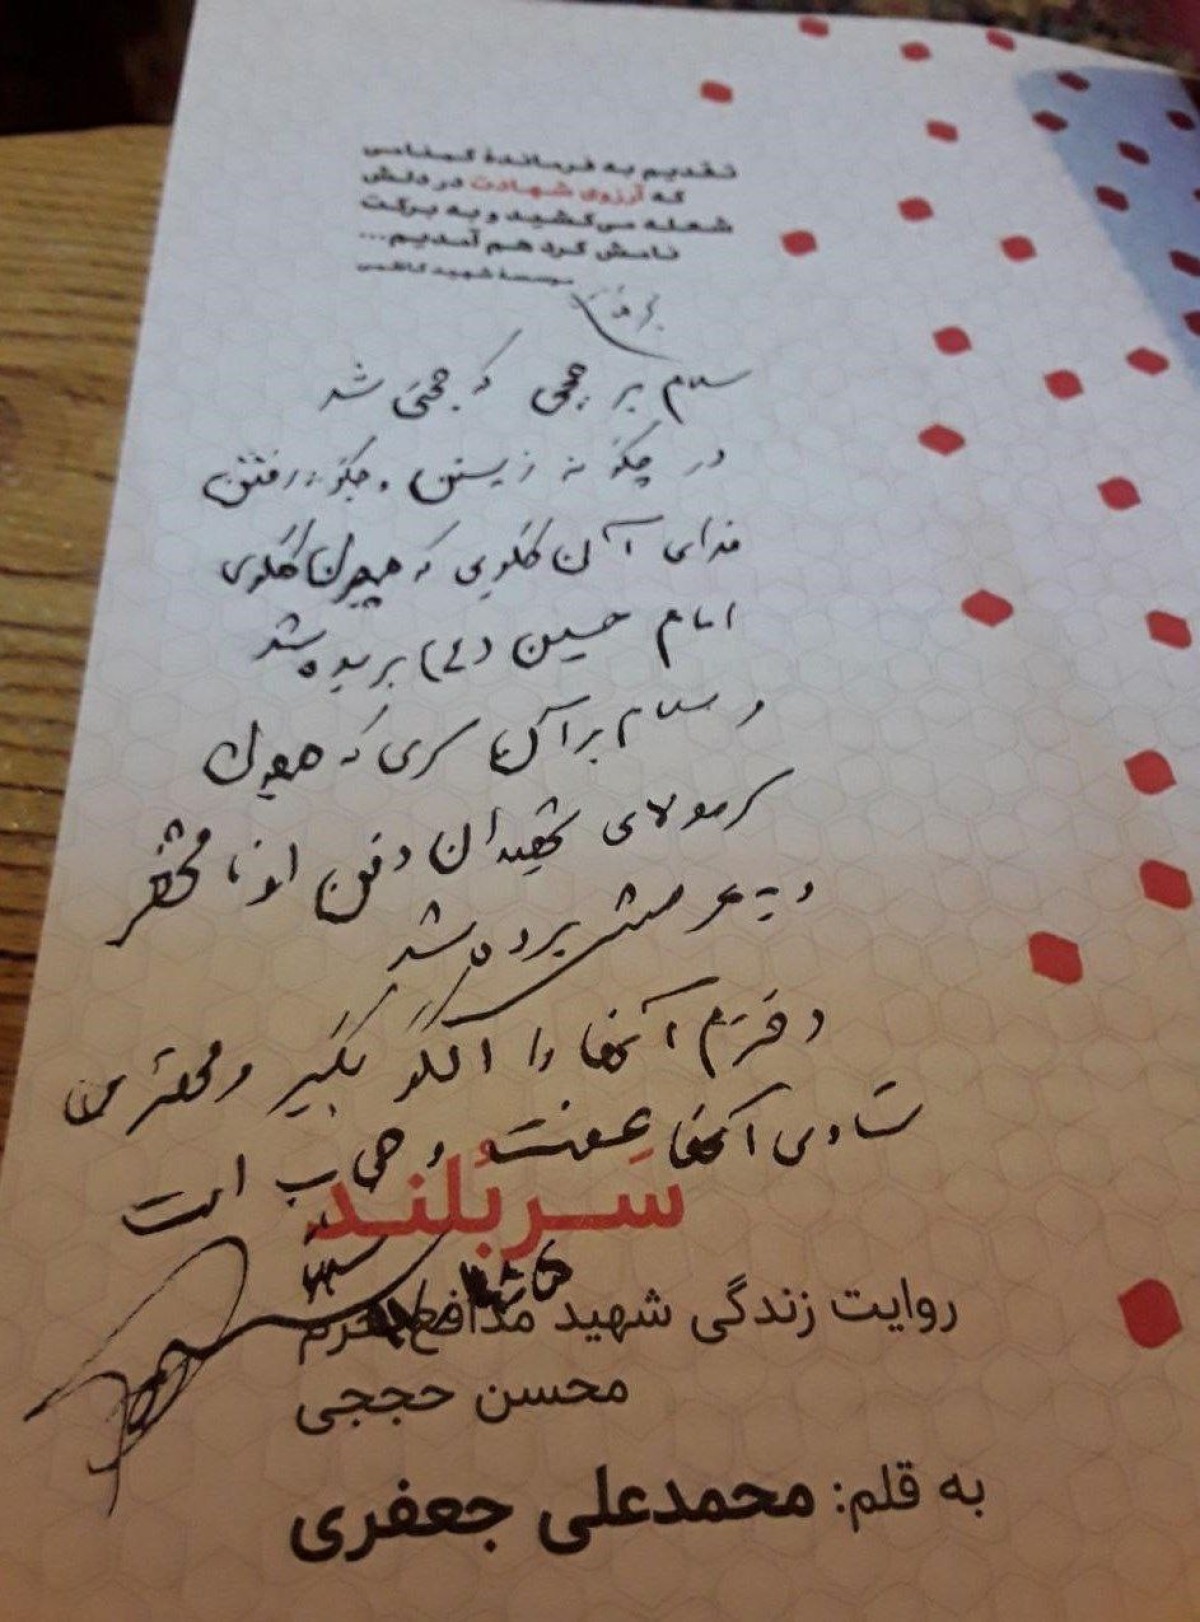 تقدیم به فرماندهٔ گمنامی
که آرزوی شهادت در دلش
شعله می‌کشید و به برکت
نامش گرد هم آمدیم...
موسسهٔ شهید کاظمی
سلام بر حججی که حجتی شد
در چگونه زیستن و چگونه رفتن
فدای آن گلویی که همچون گلوی
امام حسین (ع) بریده شد
و سلام بر آن سری که همچون
سر مولای شهیدان دفن او نا مشخص
و به عرش برده شد
دخترم آنها را الگو بگیر و مهمترین
تساوی آنها عفت و حجاب است
سربلند
روایت زندگی شهید مدافع حرم
محسن حججی
به قلم: محمدعلی جعفری